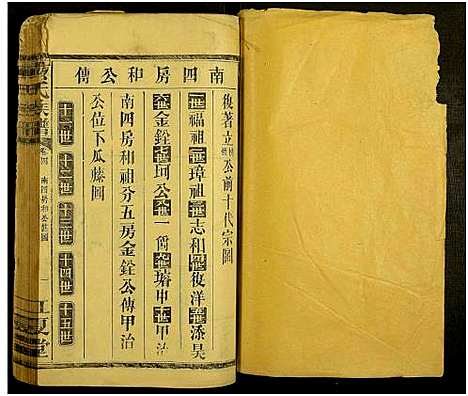 南四房和公傳
復著立公前十代宗圖
一世福祖二世璋祖三世志和四世復洋五世添昊
六世金銓七世珂公八世一簡九世堉申十世甲治
南四房和祖分五房金銓公傳甲治
公位下瓜藤圖
十一世 十二世 十三世 十四世 十五世
氏族譜
南四房和公藤圖
江夏堂